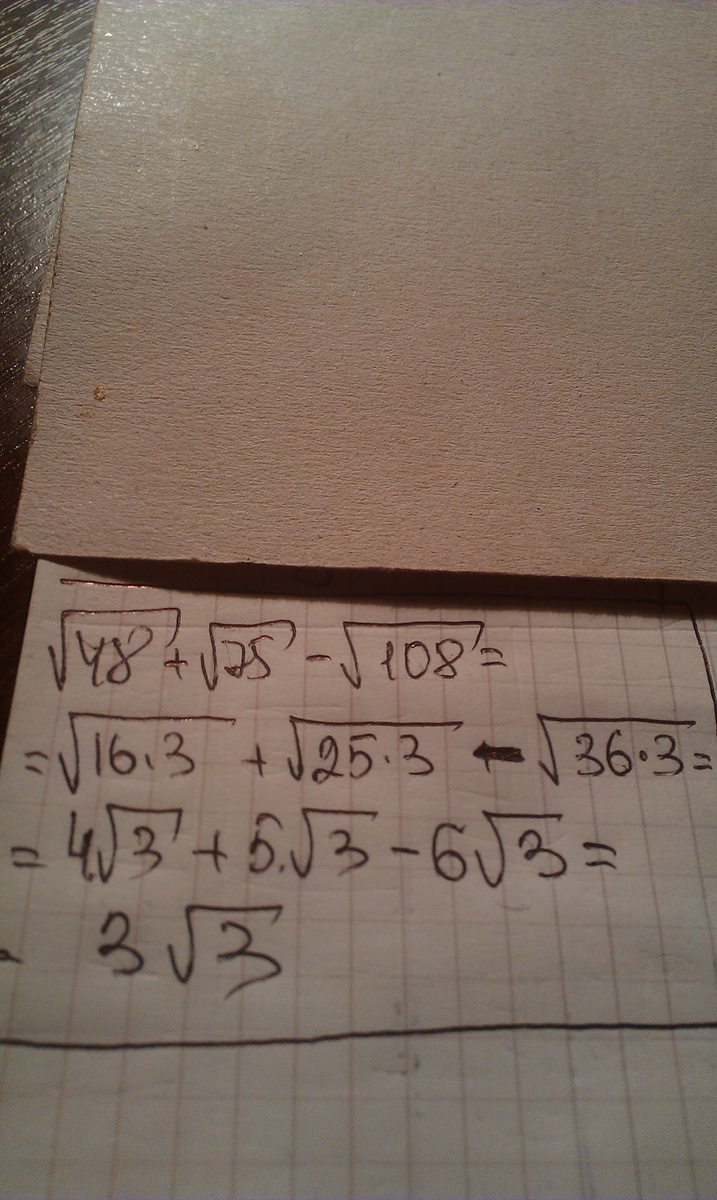 √48 + √75 - √108 =
= √16·3 + √25·3 - √36·3 =
= 4√3 + 5·√3 - 6√3 =
- 3√3